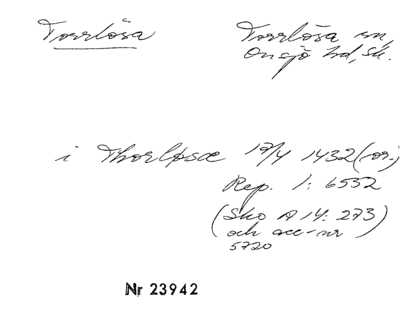 Torrlösa Torrlösa sn,
Onsjö hd, Sk.
i Thorløsæ 17/4 1432 (or.)
Rep. 1: 6552
(Sko A 14: 273)
och acc-nr
5720
Nr 23942